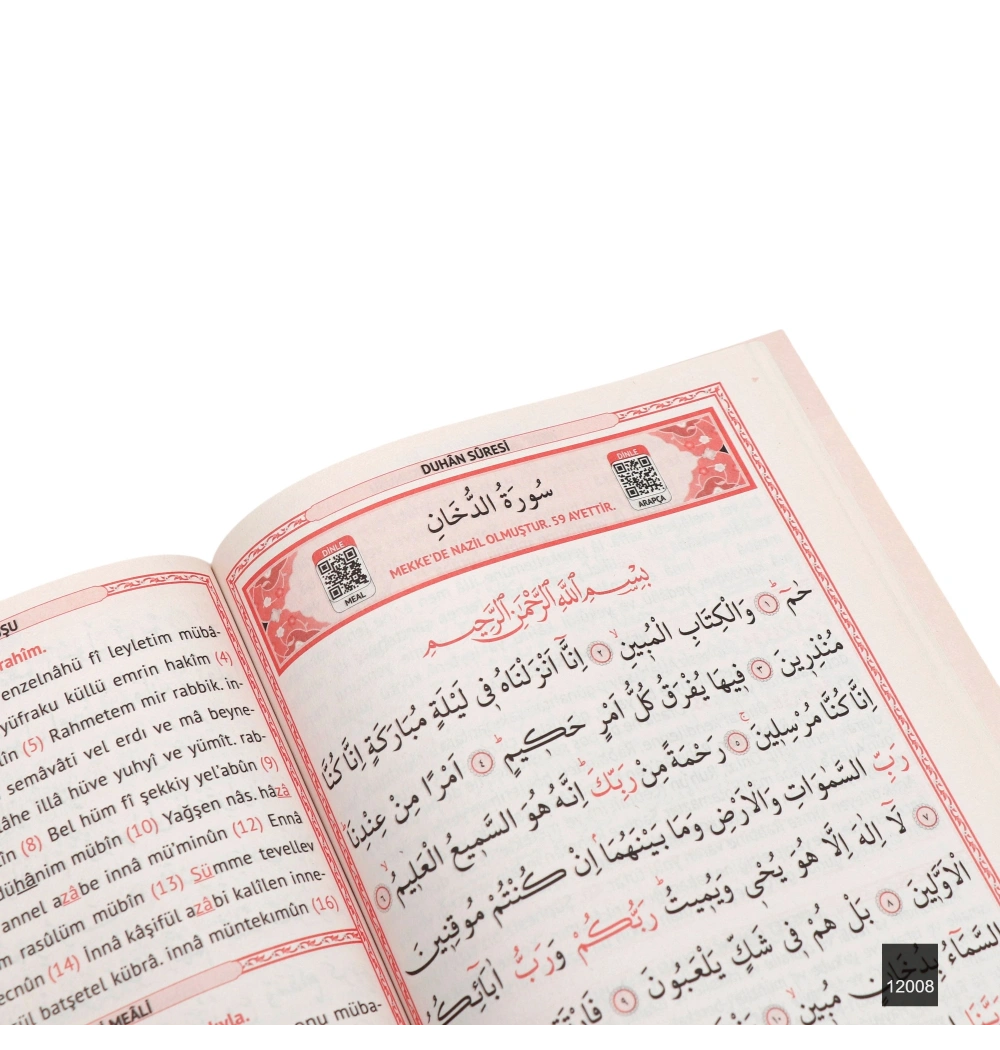 ŞU
rahîm.
enzelnâhü fî leyletim mübâ-
yüfraku küllü emrin hakîm (4)
în (5) Rahmetem mir rabbik. in-
semâvâti vel erdı ve mâ beyne-
lâhe illâ hüve yuhyî ve yümît. rab-
în (8) Bel hüm fî şekkiy yel'abûn (9)
dühânim mübîn (10) Yağşen nâs. hâzâ
annel azâbe innâ mü'minûn (12) Ennâ
m rasûlüm mübîn (13) Sümme tevellev
ecnûn (14) İnnâ kâşifül azâbi kalîlen inne-
batşetel kübrâ. innâ müntekımûn (16)
MEÂLİ
onu müba-
DUHÂN SÛRESİ
سُورَةُ الدُّخَانِ
MEKKE'DE NAZİL OLMUŞTUR. 59 AYETTİR.
DİNLE
MEAL
DİNLE
ARAPÇA
بِسْمِ اللّٰهِ الرَّحْمٰنِ الرَّحِيمِ
حٰمٓ ۚ ﴿١﴾ وَالْكِتَابِ الْمُبٖينِ ۙ ﴿٢﴾ اِنَّٓا اَنْزَلْنَاهُ فٖى لَيْلَةٍ مُبَارَكَةٍ اِنَّا كُنَّا
مُنْذِرٖينَ ﴿٣﴾ فٖيهَا يُفْرَقُ كُلُّ اَمْرٍ حَكٖيمٍ ۙ ﴿٤﴾ اَمْرًا مِنْ عِنْدِنَا
اِنَّا كُنَّا مُرْسِلٖينَ ۚ ﴿٥﴾ رَحْمَةً مِنْ رَبِّكَ اِنَّهُ هُوَ السَّمٖيعُ الْعَلٖيمُ ۙ ﴿٦﴾
رَبِّ السَّمٰوَاتِ وَالْاَرْضِ وَمَا بَيْنَهُمَا اِنْ كُنْتُمْ مُوقِنٖينَ
﴿٧﴾ لَٓا اِلٰهَ اِلَّا هُوَ يُحْيٖى وَيُمٖيتُ رَبُّكُمْ وَرَبُّ اٰبَٓائِكُمُ
الْاَوَّلٖينَ ﴿٨﴾ بَلْ هُمْ فٖى شَكٍّ يَلْعَبُونَ ﴿٩﴾ فَارْتَقِبْ
السَّمَٓاءُ بِدُخَانٍ مُبٖينٍ ۙ ﴿١٠﴾
12008